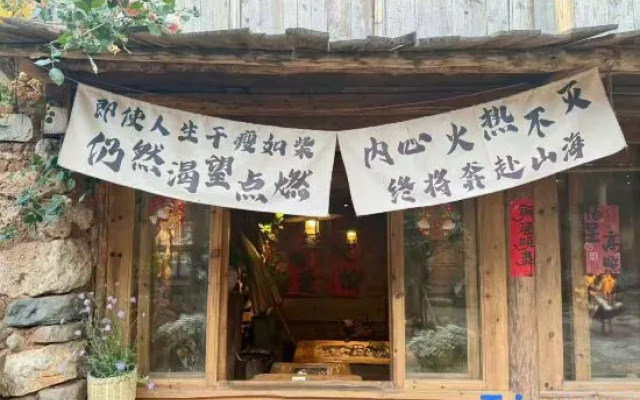 即使人生干瘦如柴
仍然渴望点燃
内心火热不灭
终将奔赴山海